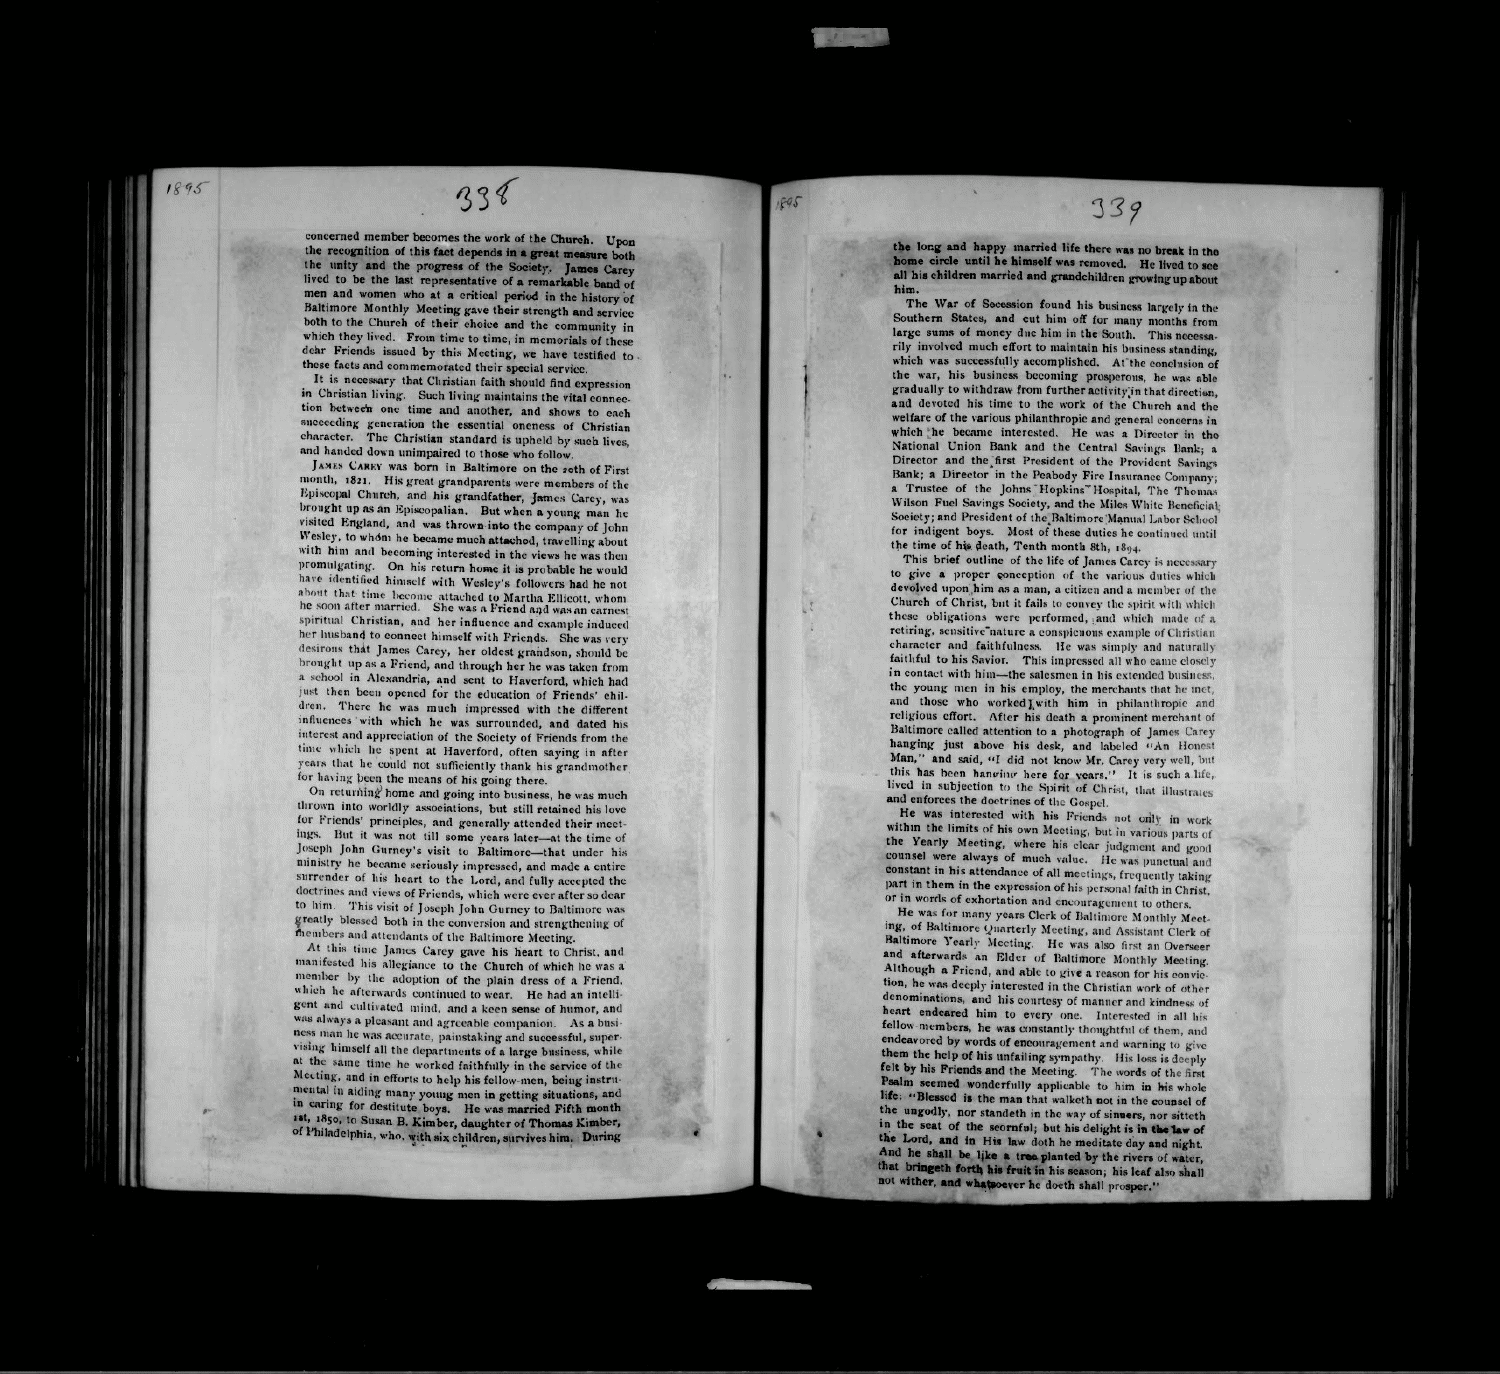 1895
338
concerned member becomes the work of the Church. Upon
the recognition of this fact depends in a great measure both
the unity and the progress of the Society. James Carey
lived to be the last representative of a remarkable band of
men and women who at a critical period in the history of
Baltimore Monthly Meeting gave their strength and service
both to the Church of their choice and the community in
which they lived. From time to time, in memorials of these
dear Friends issued by this Meeting, we have testified to
these facts and commemorated their special service.
It is necessary that Christian faith should find expression
in Christian living. Such living maintains the vital connec-
tion between one time and another, and shows to each
succeeding generation the essential oneness of Christian
character. The Christian standard is upheld by such lives,
and handed down unimpaired to those who follow.
JAMES CAREY was born in Baltimore on the 20th of First
month, 1821. His great grandparents were members of the
Episcopal Church, and his grandfather, James Carey, was
brought up as an Episcopalian. But when a young man he
visited England, and was thrown into the company of John
Wesley, to whom he became much attached, travelling about
with him and becoming interested in the views he was then
promulgating. On his return home it is probable he would
have identified himself with Wesley's followers had he not
about that time become attached to Martha Ellicott, whom
he soon after married. She was a Friend and was an earnest
spiritual Christian, and her influence and example induced
her husband to connect himself with Friends. She was very
desirous that James Carey, her oldest grandson, should be
brought up as a Friend, and through her he was taken from
a school in Alexandria, and sent to Haverford, which had
just then been opened for the education of Friends' chil-
dren. There he was much impressed with the different
influences with which he was surrounded, and dated his
interest and appreciation of the Society of Friends from the
time which he spent at Haverford, often saying in after
years that he could not sufficiently thank his grandmother
for having been the means of his going there.
On returning home and going into business, he was much
thrown into worldly associations, but still retained his love
for Friends' principles, and generally attended their meet-
ings. But it was not till some years later—at the time of
Joseph John Gurney's visit to Baltimore—that under his
ministry he became seriously impressed, and made a entire
surrender of his heart to the Lord, and fully accepted the
doctrines and views of Friends, which were ever after so dear
to him. This visit of Joseph John Gurney to Baltimore was
greatly blessed both in the conversion and strengthening of
members and attendants of the Baltimore Meeting.
At this time James Carey gave his heart to Christ, and
manifested his allegiance to the Church of which he was a
member by the adoption of the plain dress of a Friend,
which he afterwards continued to wear. He had an intelli-
gent and cultivated mind, and a keen sense of humor, and
was always a pleasant and agreeable companion. As a busi-
ness man he was accurate, painstaking and successful, super-
vising himself all the departments of a large business, while
at the same time he worked faithfully in the service of the
Meeting, and in efforts to help his fellow-men, being instru-
mental in aiding many young men in getting situations, and
in caring for destitute boys. He was married Fifth month
1st, 1850, to Susan B. Kimber, daughter of Thomas Kimber,
of Philadelphia, who, with six children, survives him. During
1895
339
the long and happy married life there was no break in the
home circle until he himself was removed. He lived to see
all his children married and grandchildren growing up about
him.
The War of Secession found his business largely in the
Southern States, and cut him off for many months from
large sums of money due him in the South. This necessa-
rily involved much effort to maintain his business standing,
which was successfully accomplished. At the conclusion of
the war, his business becoming prosperous, he was able
gradually to withdraw from further activity in that direction,
and devoted his time to the work of the Church and the
welfare of the various philanthropic and general concerns in
which he became interested. He was a Director in the
National Union Bank and the Central Savings Bank; a
Director and the first President of the Provident Savings
Bank; a Director in the Peabody Fire Insurance Company;
a Trustee of the Johns Hopkins Hospital, The Thomas
Wilson Fuel Savings Society, and the Miles White Beneficial
Society; and President of the Baltimore Manual Labor School
for indigent boys. Most of these duties he continued until
the time of his death, Tenth month 8th, 1894.
This brief outline of the life of James Carey is necessary
to give a proper conception of the various duties which
devolved upon him as a man, a citizen and a member of the
Church of Christ, but it fails to convey the spirit with which
these obligations were performed, and which made of a
retiring, sensitive nature a conspicuous example of Christian
character and faithfulness. He was simply and naturally
faithful to his Savior. This impressed all who came closely
in contact with him—the salesmen in his extended business,
the young men in his employ, the merchants that he met,
and those who worked with him in philanthropic and
religious effort. After his death a prominent merchant of
Baltimore called attention to a photograph of James Carey
hanging just above his desk, and labeled "An Honest
Man," and said, "I did not know Mr. Carey very well, but
this has been hanging here for years." It is such a life,
lived in subjection to the Spirit of Christ, that illustrates
and enforces the doctrines of the Gospel.
He was interested with his Friends not only in work
within the limits of his own Meeting, but in various parts of
the Yearly Meeting, where his clear judgment and good
counsel were always of much value. He was punctual and
constant in his attendance of all meetings, frequently taking
part in them in the expression of his personal faith in Christ,
or in words of exhortation and encouragement to others.
He was for many years Clerk of Baltimore Monthly Meet-
ing, of Baltimore Quarterly Meeting, and Assistant Clerk of
Baltimore Yearly Meeting. He was also first an Overseer
and afterwards an Elder of Baltimore Monthly Meeting.
Although a Friend, and able to give a reason for his convic-
tion, he was deeply interested in the Christian work of other
denominations, and his courtesy of manner and kindness of
heart endeared him to every one. Interested in all his
fellow-members, he was constantly thoughtful of them, and
endeavored by words of encouragement and warning to give
them the help of his unfailing sympathy. His loss is deeply
felt by his Friends and the Meeting. The words of the first
Psalm seemed wonderfully applicable to him in his whole
life: "Blessed is the man that walketh not in the counsel of
the ungodly, nor standeth in the way of sinners, nor sitteth
in the seat of the scornful; but his delight is in the law of
the Lord, and in His law doth he meditate day and night.
And he shall be like a tree planted by the rivers of water,
that bringeth forth his fruit in his season; his leaf also shall
not wither, and whatsoever he doeth shall prosper."